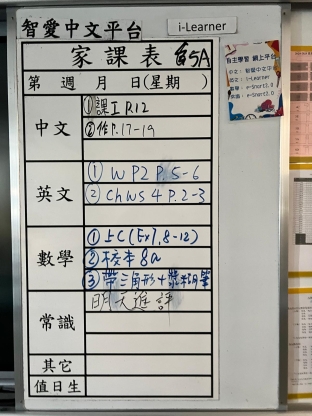 智愛中文平台
i-Learner
家課表 5A
第 週 月 日(星期 )
中文
①課工 P.12
②作P.17-19
英文
① WP2 P.5-6
② ChWS 4 P.2-3
數學
① 5C (Ex7, 8-12)
② 8a
③ 帶三角形+
常識
明天進評
其它
值日生
自主學習 網上平台
中文: 智愛中文平台
英文: i-Learner
數學: e-Smart3.0
常識: e-Smart3.0